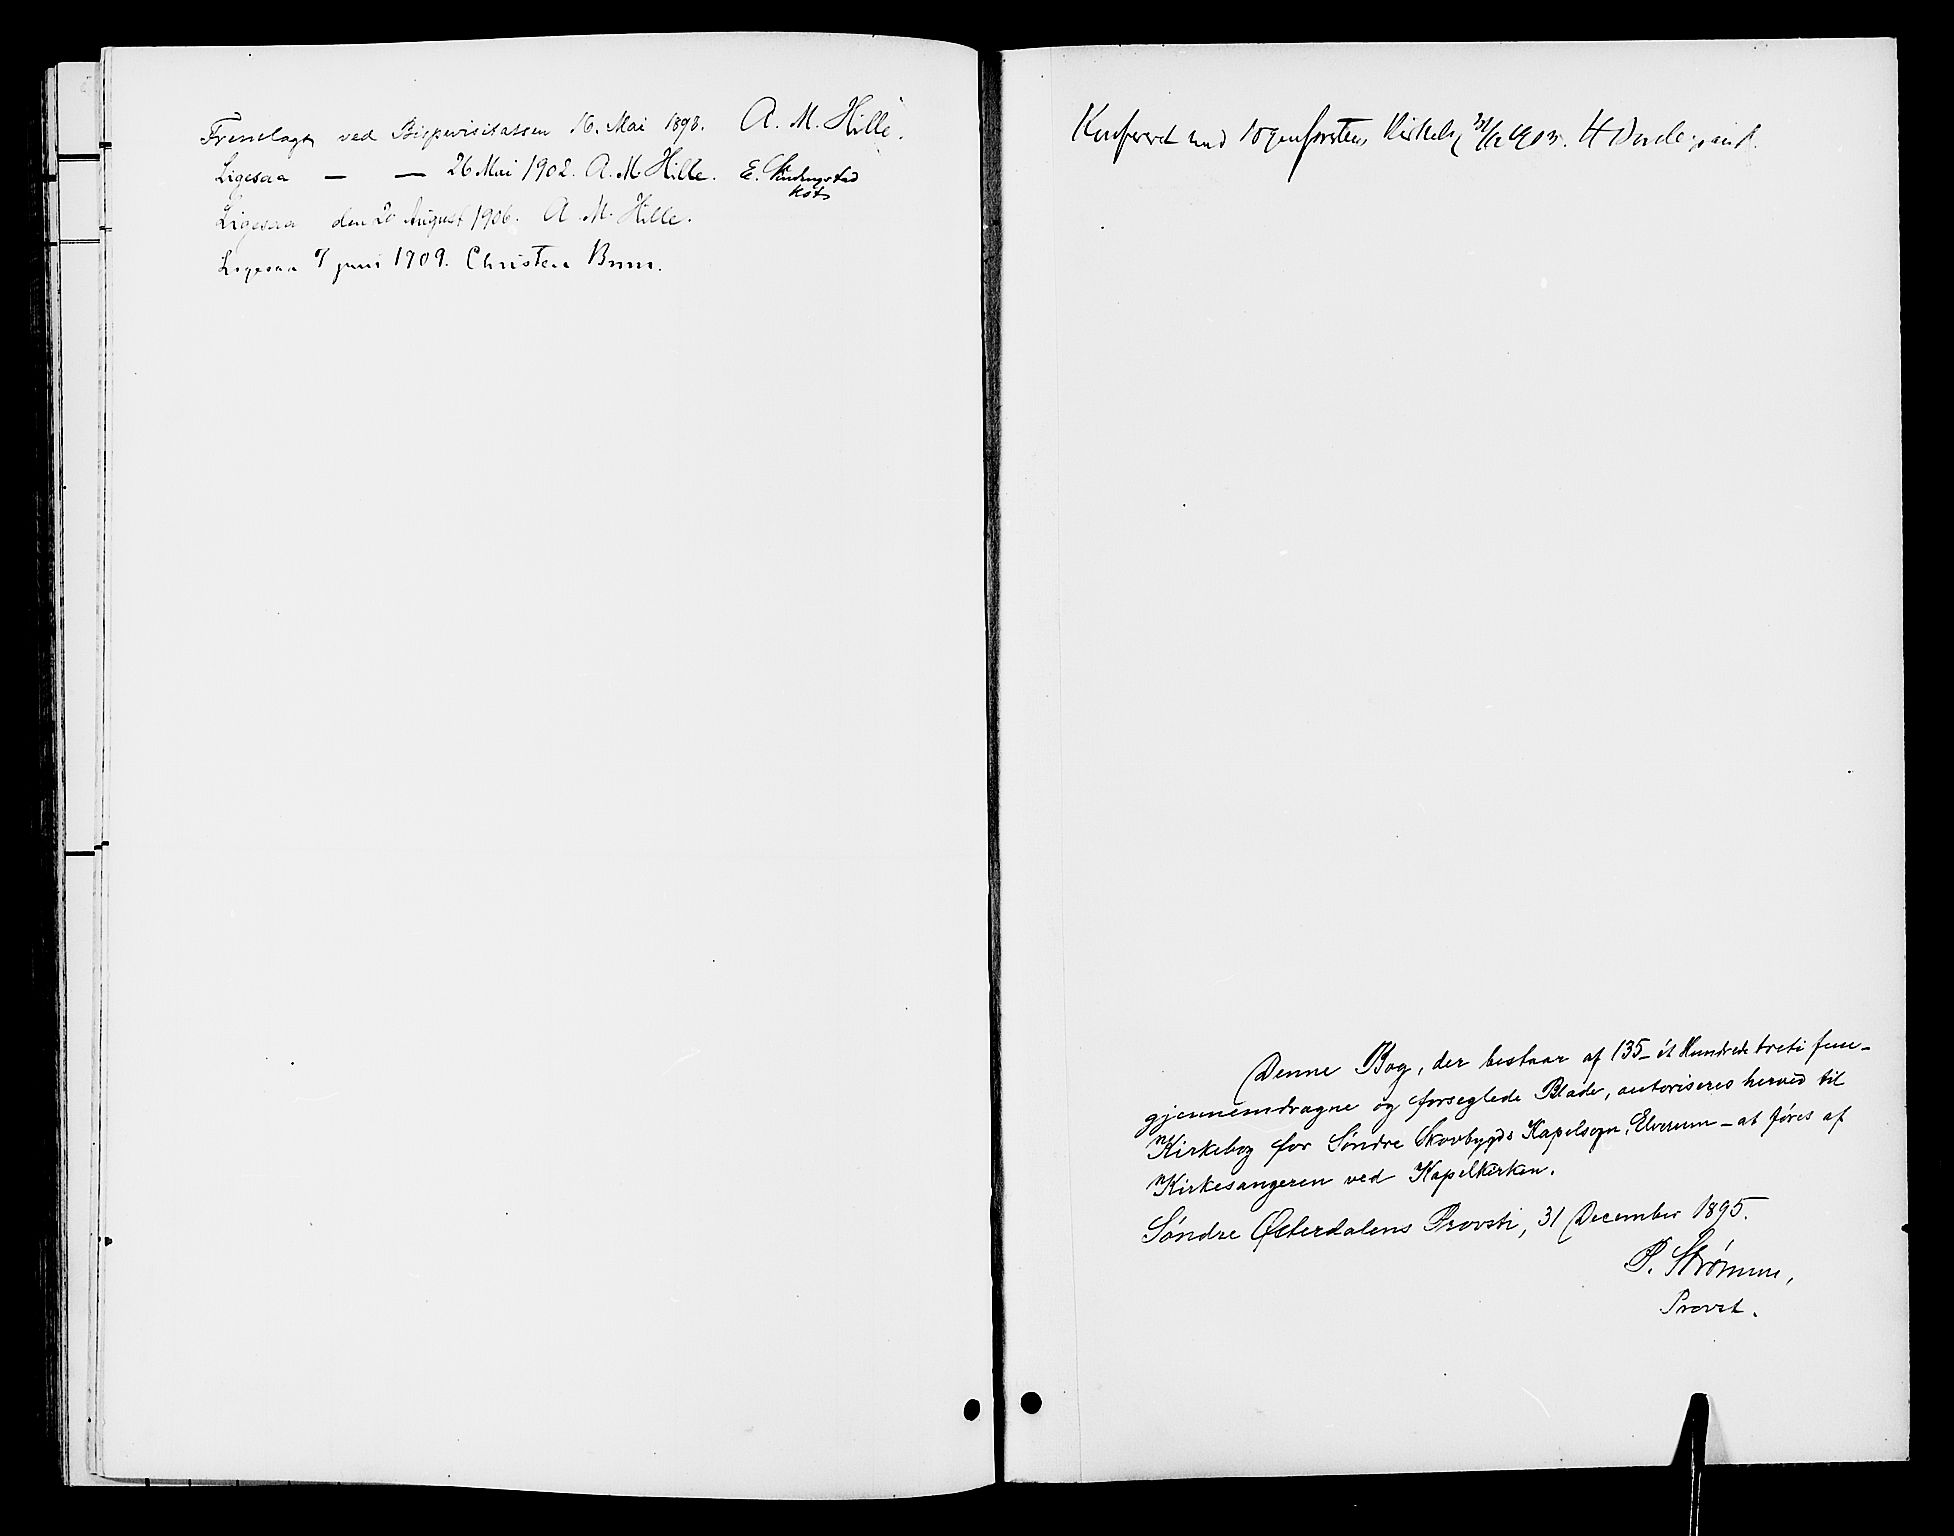 Fremlagt ved Bispevisitatsen 16. Mai 1898. A. M. Hille.
Ligesaa — — 26 Mai 1902. A. M. Hille. E.
Ligesaa den 20 August 1906. A. M. Hille.
Ligesaa juni 1909. Christen Brun.
Konfereret med Sogneprestens Kirkebog
Denne Bog, der bestaar af 135 – et Hundrede treti fem –
gjennemdragne og forseglede Blade, autoriseres herved til
Kirkebog for Søndre Skovbygds Kapelsogn, Elverum – at føres af
Kirkesangeren ved Kapelkirken.
Søndre Østerdalens Provsti, 31 December 1895.
P. Strømme,
Provst.